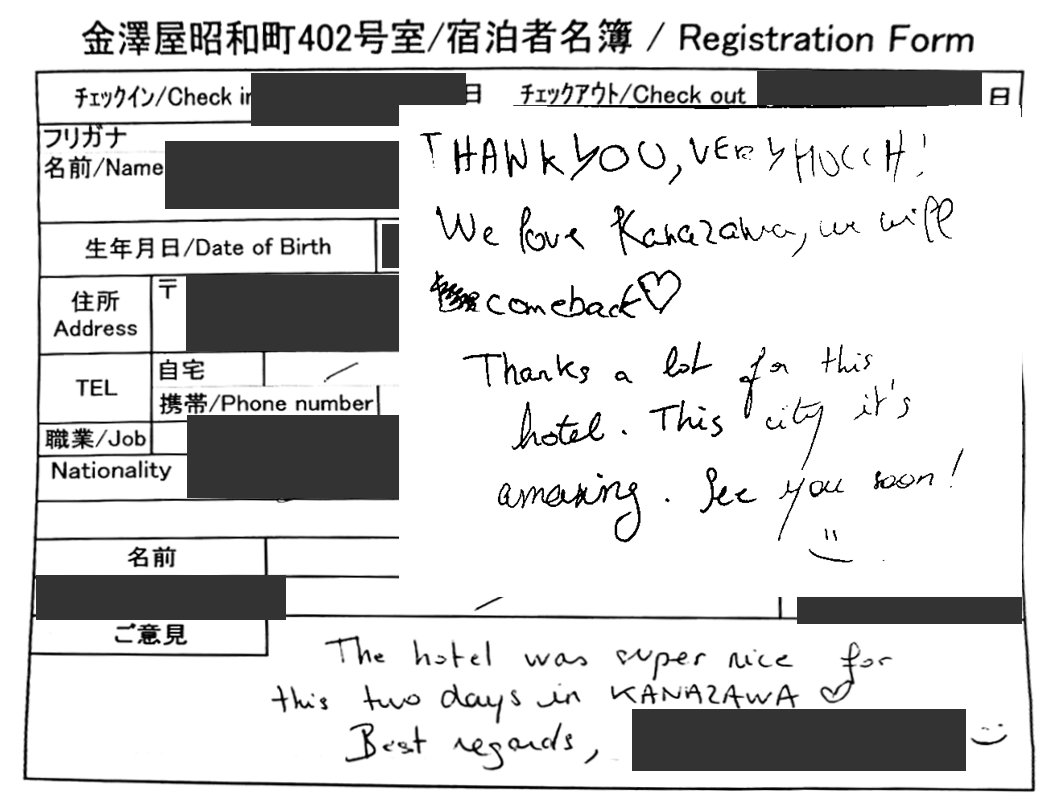 金澤屋昭和町402号室/宿泊者名簿 / Registration Form
チェックイン/Check in 日 チェックアウト/Check out 日
フリガナ
名前/Name
生年月日/Date of Birth
住所
Address
〒
TEL
自宅
携帯/Phone number
職業/Job
Nationality
名前
THANK YOU, VERY MUCCH!
We love Kanazawa, we will
comeback♡
Thanks a lot for this
hotel. This city it's
amazing. See you soon!
ご意見
The hotel was super nice for
this two days in KANAZAWA ♡
Best regards,